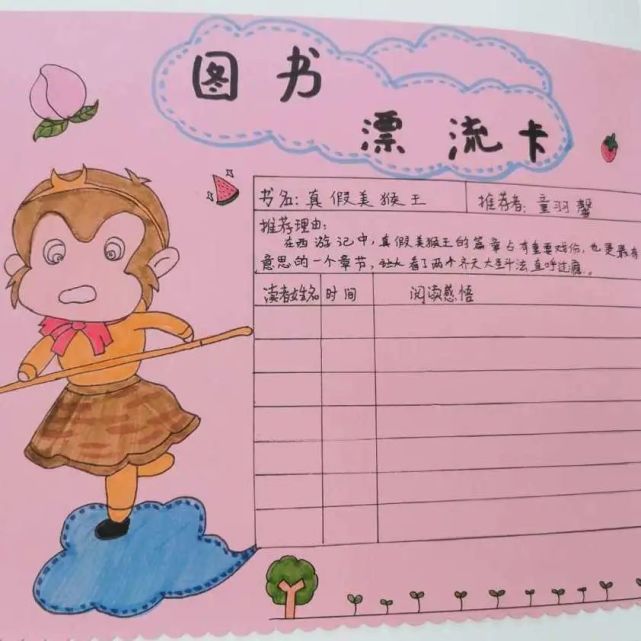 图书
漂流卡
书名:真假美猴王 推荐者:童羽馨
推荐理由:
在西游记中,真假美猴王的篇章占有重要戏份,也是最有
意思的一个章节,让人看了两个齐天大圣斗法直呼过瘾。
读者姓名 时间 阅读感悟